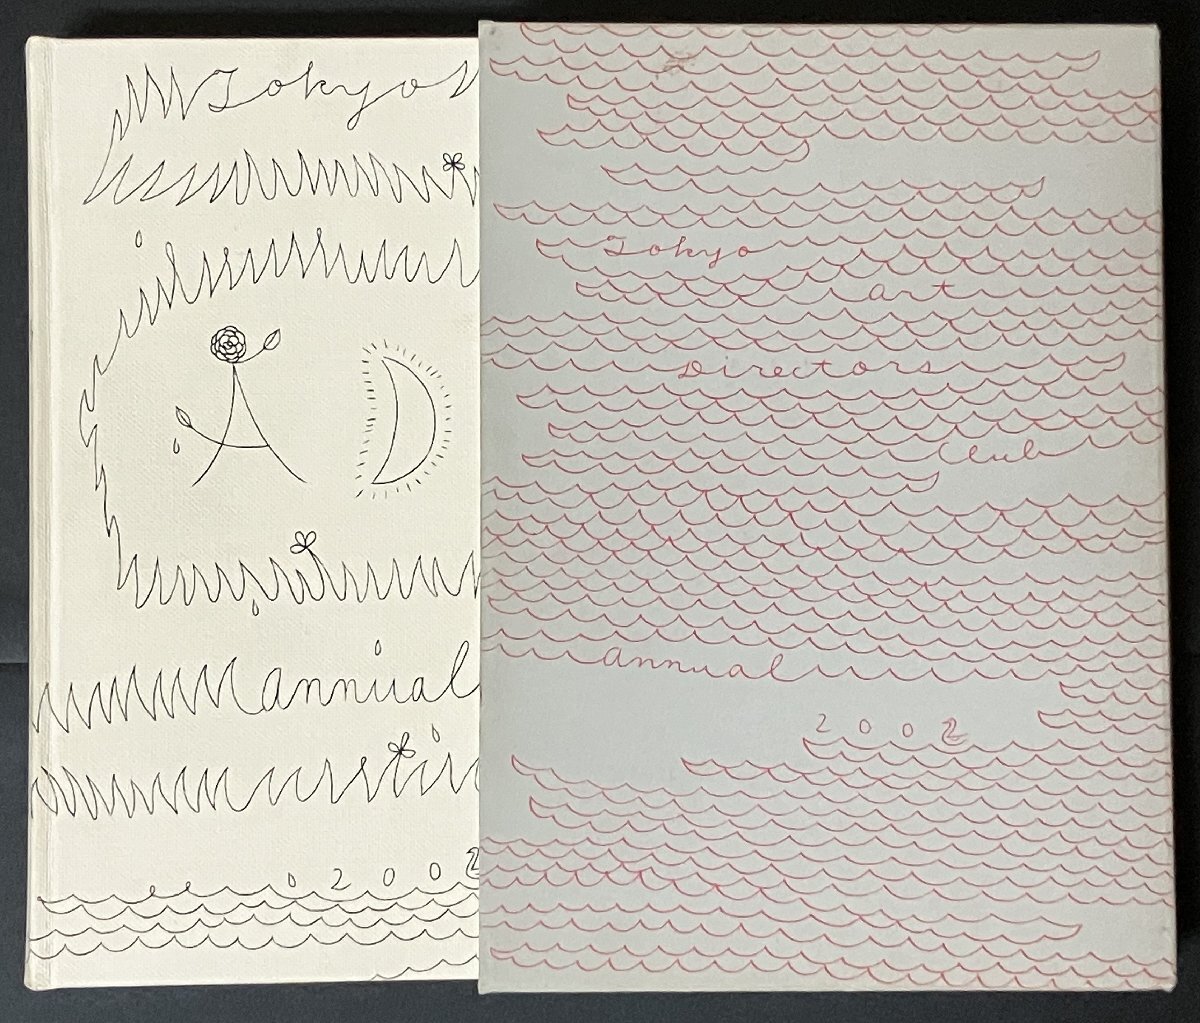 Tokyo
A D
annual
2002
Tokyo
art
Directors
Club
annual
2002